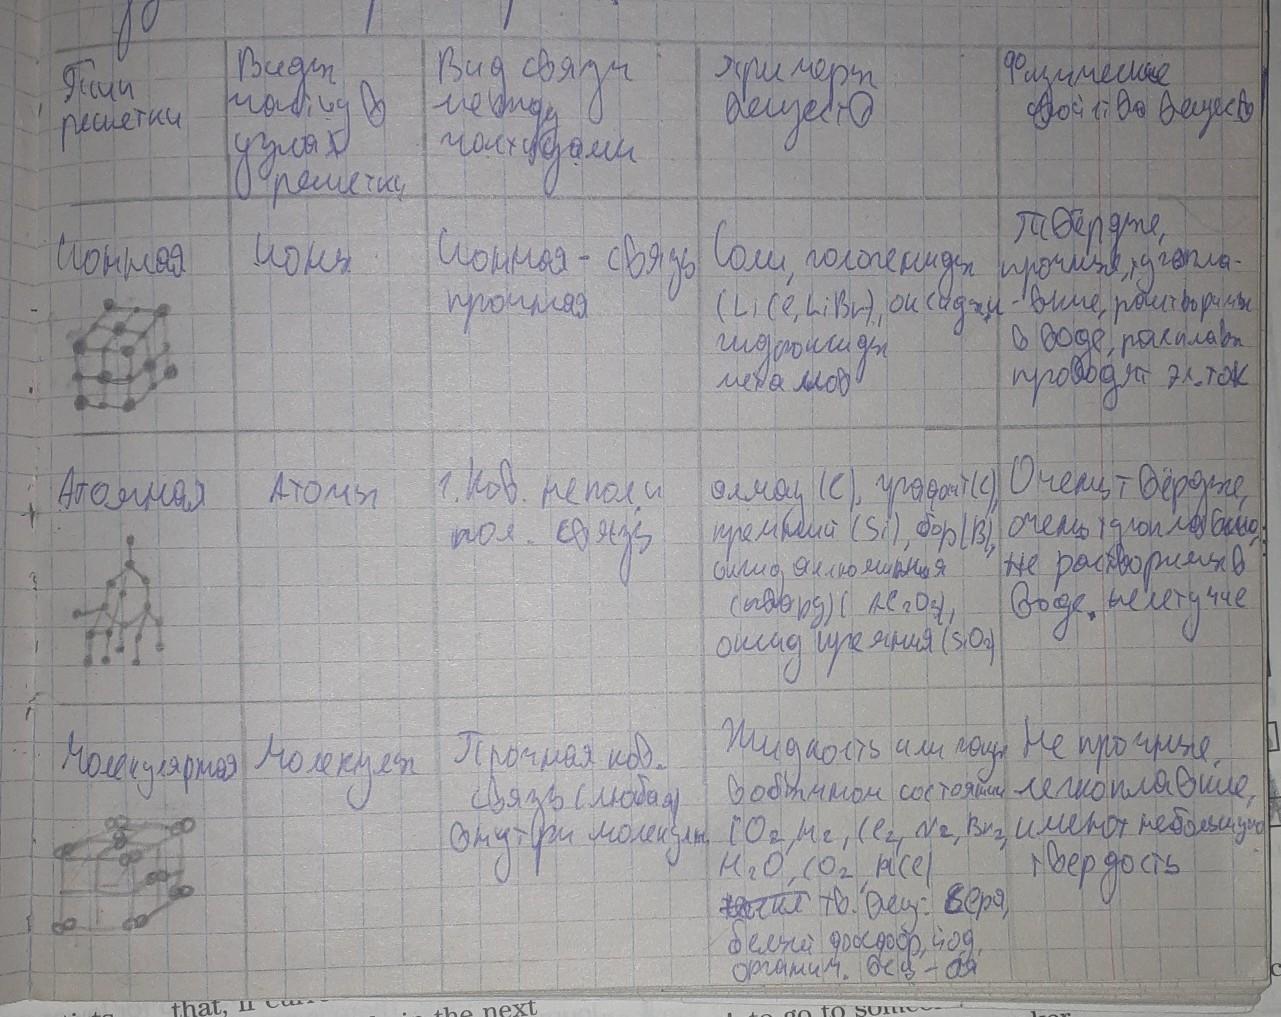 Типы
решетки
Виды
частиц в
узлах
решетки
Вид связи
между
частицами
Примеры
веществ
Физические
свойства веществ
Ионная
Ионы
Ионная - связь
прочная
Соли, галогениды
(LiCl, LiBr), оксиды и
гидроксиды
металлов
Твёрдые,
прочные, тугопла-
-вкие, растворимы
в воде, расплавы
проводят эл. ток
Атомная
Атомы
1. Ков. непол и
пол. связь
алмаз (C), графит (C),
кремний (Si), бор (B),
оксид аллюминия
(корунд) (Al2O3),
оксид кремния (SiO2)
Очень твёрдые,
очень тугоплавкие,
не растворимы в
воде, нелетучие
Молекулярная
Молекулы
Прочная ков.
связь (любая)
внутри молекулы
Жидкость или газы
в обычном состоянии
(O2, H2, Cl2, N2, Br2,
H2O, CO2, HCl)
тв. вещ: Сера,
белый фосфор, йод,
органич. вещ-ва
Не прочные,
легкоплавкие,
имеют небольшую
твердость
that, if
the next
to go to